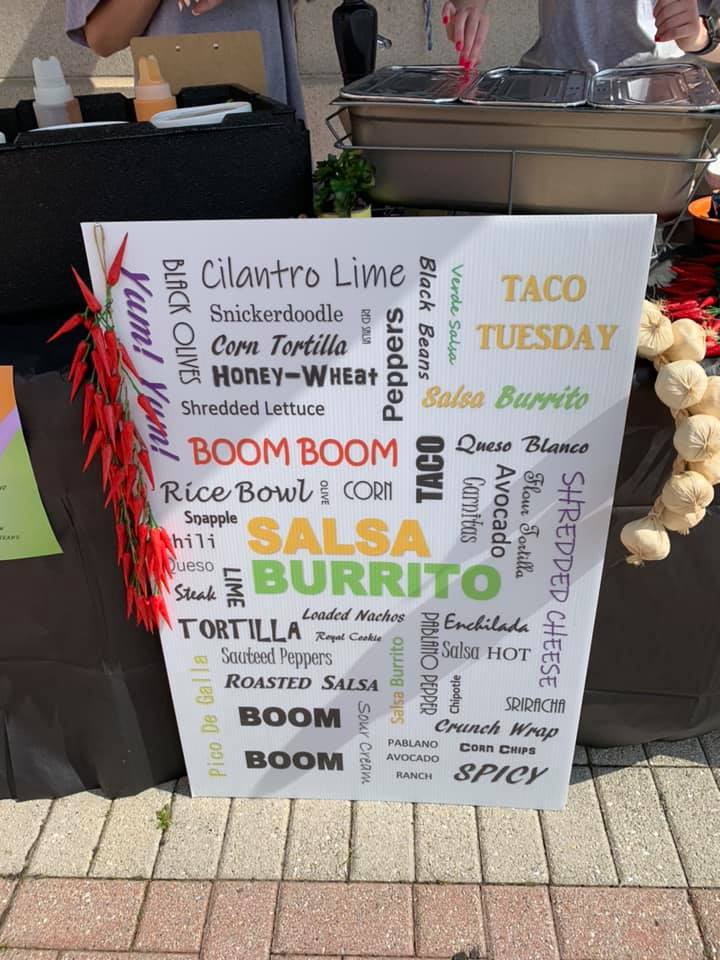 Yum! Yum!
BLACK OLIVES
Cilantro Lime
Snickerdoodle
RED SALSA
Corn Tortilla
Honey-Wheat
Shredded Lettuce
Peppers
Black Beans
Verde Salsa
TACO
TUESDAY
Salsa Burrito
BOOM BOOM
TACO
Queso Blanco
Rice Bowl
OLIVE
CORN
Carnitas
Avocado
Flour Tortilla
SHREDDED CHEESE
Snapple
hili
Queso
Steak
LIME
SALSA
BURRITO
Loaded Nachos
TORTILLA
Royal Cookie
Sauteed Peppers
Salsa Burrito
PABLANO PEPPER
Enchilada
Salsa HOT
Pico De Galla
ROASTED SALSA
Chipotle
SRIRACHA
BOOM
Sour Cream
Crunch Wrap
PABLANO
AVOCADO
RANCH
CORN CHIPS
BOOM
SPICY